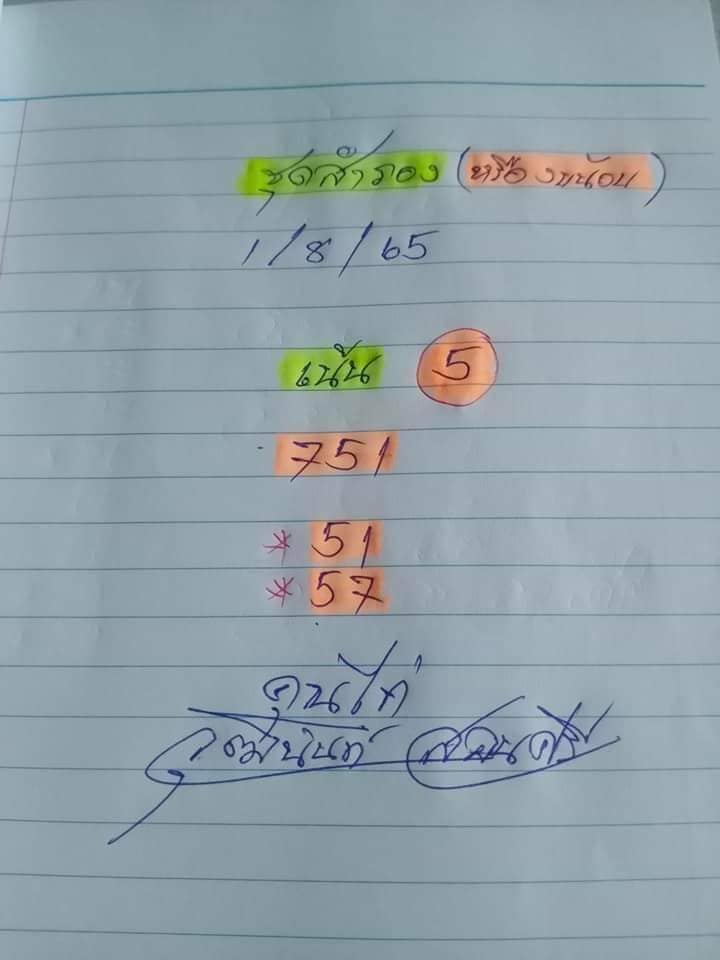 ชุดสำรอง (หรืองบน้อย)
1/8/65
เน้น 5
751
* 51
* 57
คุณไก่